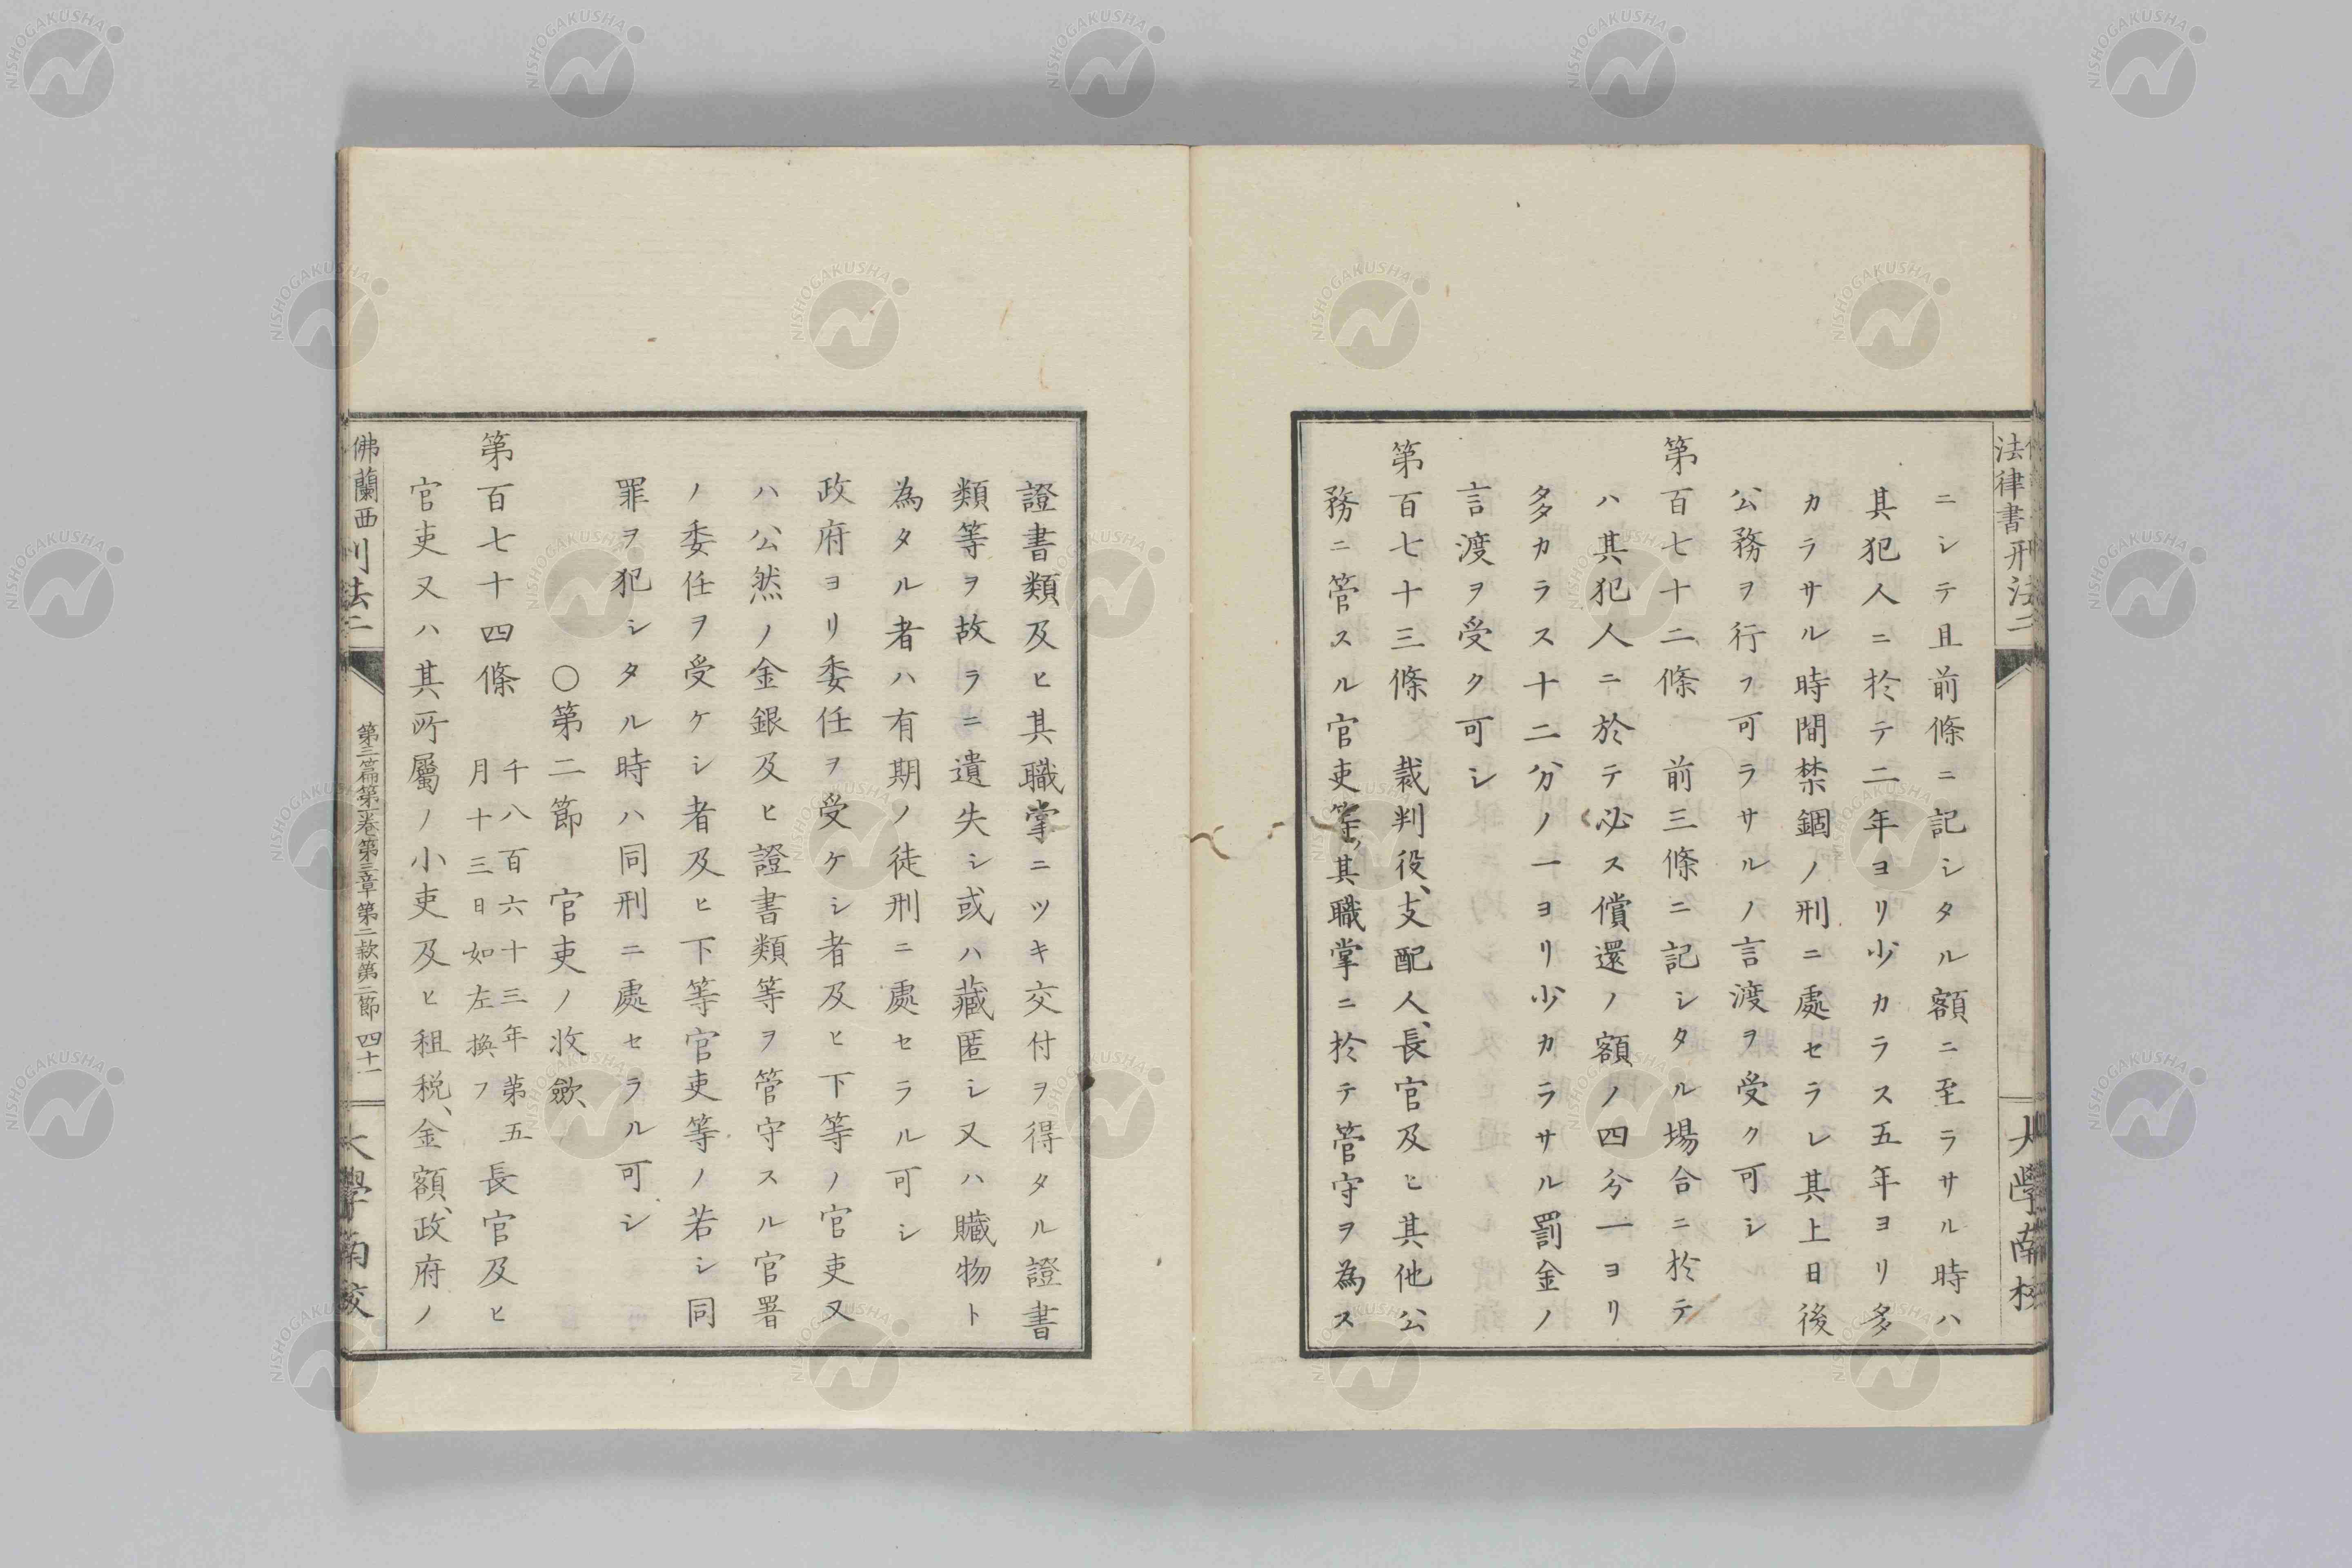 法律書刑法二
ニシテ且前條ニ記シタル額ニ至ラサル時ハ
其犯人ニ於テ二年ヨリ少カラス五年ヨリ多
カラサル時間禁錮ノ刑ニ處セラレ其上日後
公務ヲ行フ可ラサルノ言渡ヲ受ク可シ
第百七十二條 前三條ニ記シタル場合ニ於テ
ハ其犯人ニ於テ必ス償還ノ額ノ四分一ヨリ
多カラス十二分ノ一ヨリ少カラサル罰金ノ
言渡ヲ受ク可シ
第百七十三條 裁判役、支配人、長官及ヒ其他公
務ニ管スル官吏等、其職掌ニ於テ管守ヲ為ス
大學南校
證書類及ヒ其職掌ニツキ交付ヲ得タル證書
類等ヲ故ラニ遺失シ或ハ藏匿シ又ハ贓物ト
為タル者ハ有期ノ徒刑ニ處セラル可シ
政府ヨリ委任ヲ受ケシ者及ヒ下等ノ官吏又
ハ公然ノ金銀及ヒ證書類等ヲ管守スル官署
ノ委任ヲ受ケシ者及ヒ下等官吏等ノ若シ同
罪ヲ犯シタル時ハ同刑ニ處セラル可シ
○第二節 官吏ノ收歛
第百七十四條 千八百六十三年第五月十三日如左換フ 長官及ヒ
官吏又ハ其所屬ノ小吏及ヒ租税、金額、政府ノ
佛蘭西刑法二 第三篇第一巻第三章第二款第二節 四十一 大學南校
NISHOGAKUSHA